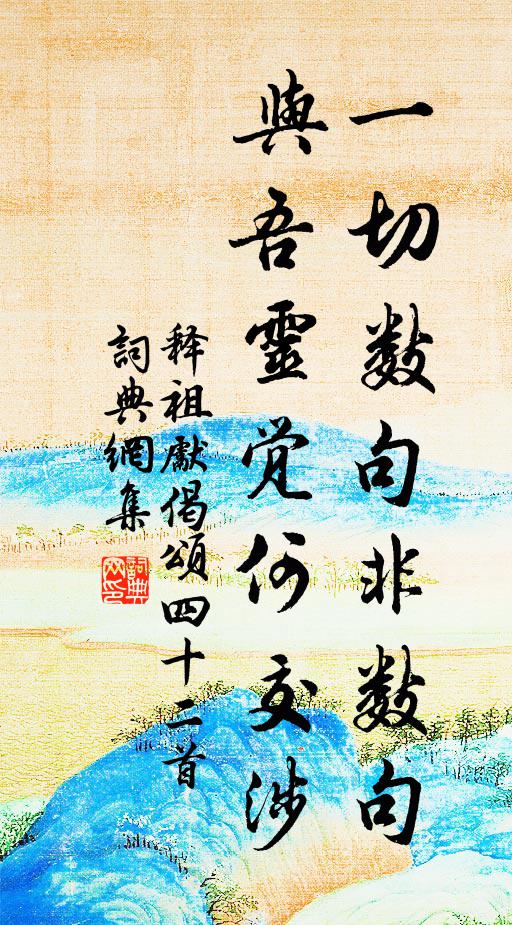 一切数句非数句
與吾靈覺何交涉
释祖獻偈頌四十二首
詞典網集
詞典网印